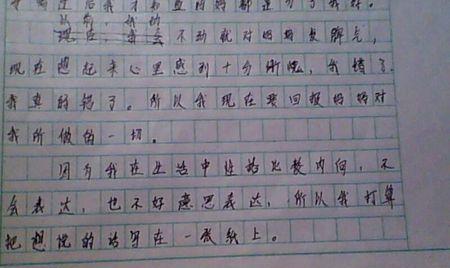 才知道后我才知道妈妈都是为了我好。
以前，我动
不动就对妈妈发脾气，
现在想起来心里感到十分惭愧，我错了
我真的错了。所以我现在要回报妈妈对
我所做的一切。
因为我在生活中性格比较内向，不
会表达，也不好意思表达，所以我打算
把想说的话写在一张纸上。